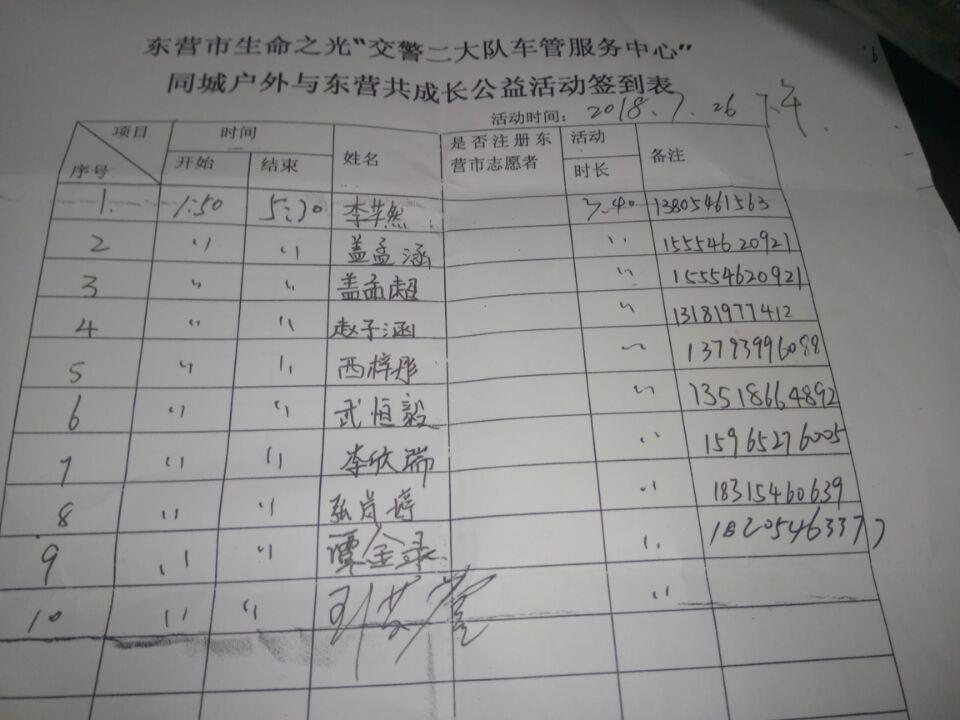 东营市生命之光“交警二大队车管服务中心”
同城户外与东营共成长公益活动签到表
活动时间：2018.7.26 下午
项目 时间 姓名 是否注册东营市志愿者 活动时长 备注
序号 开始 结束
1. 1:50 5:30 李 然 3.40 13805461563
2 〃 〃 盖孟涵 〃 15554620921
3 〃 〃 盖孟超 〃 15554620921
4 〃 〃 赵子涵 〃 13181977412
5 〃 〃 西梓彤 〃 13793996088
6 〃 〃 武恒毅 〃 13518664892
7 〃 〃 李欣瑞 〃 15965276005
8 〃 〃 张肖婷 〃 18315460639
9 〃 〃 谭金录 〃 18205463377
10 〃 〃 〃